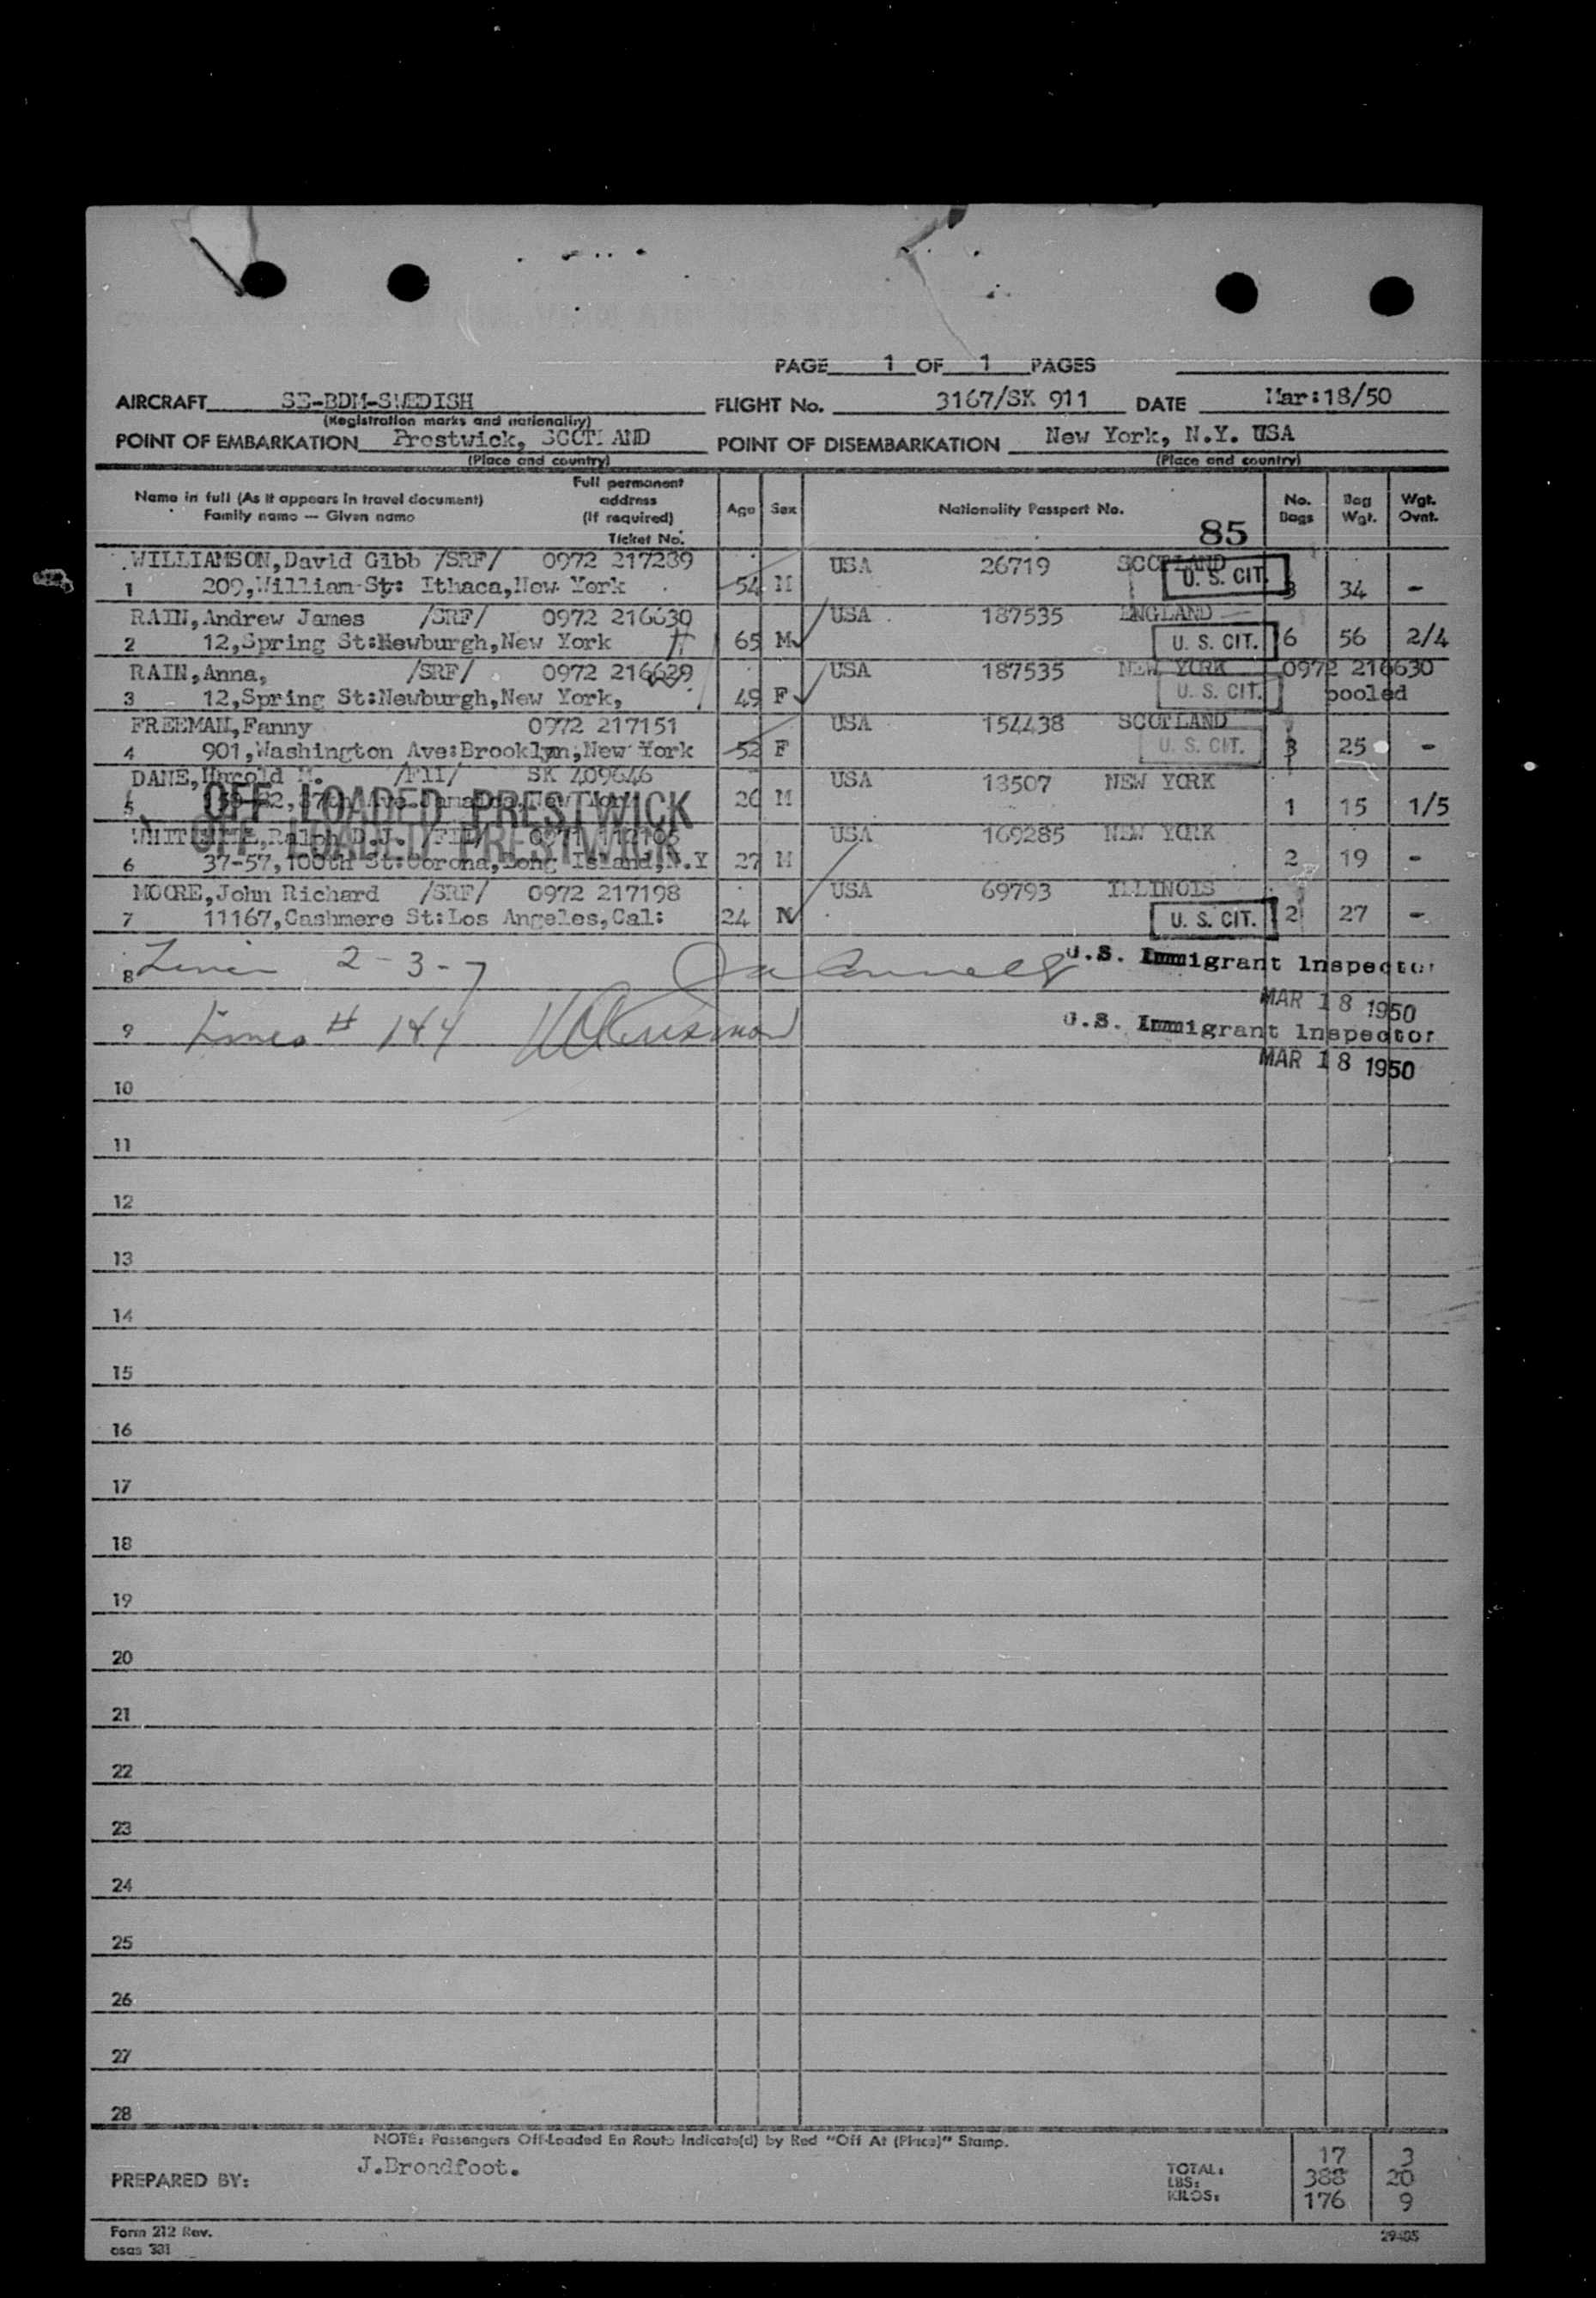 PAGE 1 OF 1 PAGES
AIRCRAFT SE-BDM-SWEDISH FLIGHT No. 3167/SK 911 DATE Mar:18/50
(Registration marks and nationality)
POINT OF EMBARKATION Prestwick, SCOTLAND POINT OF DISEMBARKATION New York, N.Y. USA
(Place and country) (Place and country)
Name in full (As it appears in travel document)
Family name — Given name
Full permanent
address
(If required)
Ticket No.
Age Sex Nationality Passport No.
No.
Bags
Bag
Wgt.
Wgt.
Ovnt.
85
WILLIAMSON,David Gibb /SRF/ 0972 217239 USA 26719 SCOTLAND
1 209,William St: Ithaca,New York 54 M U. S. CIT. 3 34 -
RAIN,Andrew James /SRF/ 0972 216630 USA 187535 ENGLAND
2 12,Spring St:Newburgh,New York 65 M U. S. CIT. 6 56 2/4
RAIN,Anna, /SRF/ 0972 216629 USA 187535 NEW YORK 0972 216630
3 12,Spring St:Newburgh,New York, 49 F U. S. CIT. pooled
FREEMAN,Fanny 0972 217151 USA 154438 SCOTLAND
4 901,Washington Ave:Brooklyn,New York 52 F U. S. CIT. 3 25 -
DANE,Harold M. SK 209646 USA 13507 NEW YORK
5 26 M 1 15 1/5
OFF LOADED PRESTWICK
Ralph USA 169285 NEW YORK
OFF LOADED PRESTWICK
6 37-57,108th St:Corona,Long Island,N.Y 27 M 2 19 -
MOORE,John Richard /SRF/ 0972 217198 USA 69793 ILLINOIS
7 11167,Cashmere St:Los Angeles,Cal: 24 M U. S. CIT. 2 27 -
8 2-3-7 U.S. Immigrant Inspector
MAR 18 1950
9 # 144 U.S. Immigrant Inspector
MAR 18 1950
10
11
12
13
14
15
16
17
18
19
20
21
22
23
24
25
26
27
28
NOTE: Passengers Off-Loaded En Route Indicate(d) by Red "Off At (Place)" Stamp.
PREPARED BY: J.Broadfoot.
TOTAL: 17 3
LBS: 388 20
KILOS: 176 9
Form 212 Rev.
osas 381
29405